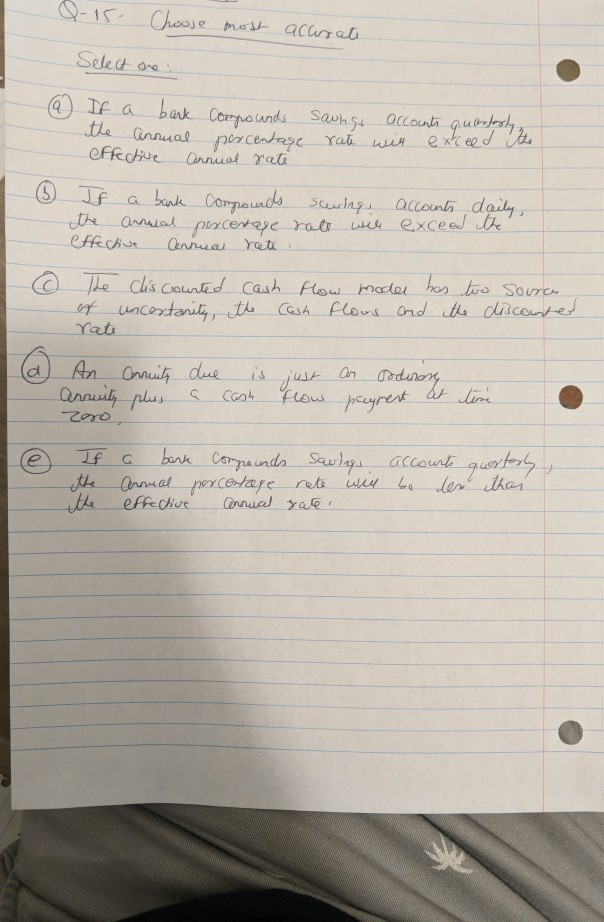 Q-15. Choose most accurate
Select one:
(a) If a bank compounds savings accounts quarterly,
the annual percentage rate will exceed the
effective annual rate
(b) If a bank compounds savings accounts daily,
the annual percentage rate will exceed the
effective annual rate.
(c) The discounted cash flow model has two source
of uncertanity, the cash flows and the discounted
rate
(d) An annuity due is just an ordinary
annuity plus a cash flow payment at time
zero.
(e) If a bank compounds savings accounts quarterly,
the annual percentage rate will be less than
the effective annual rate.